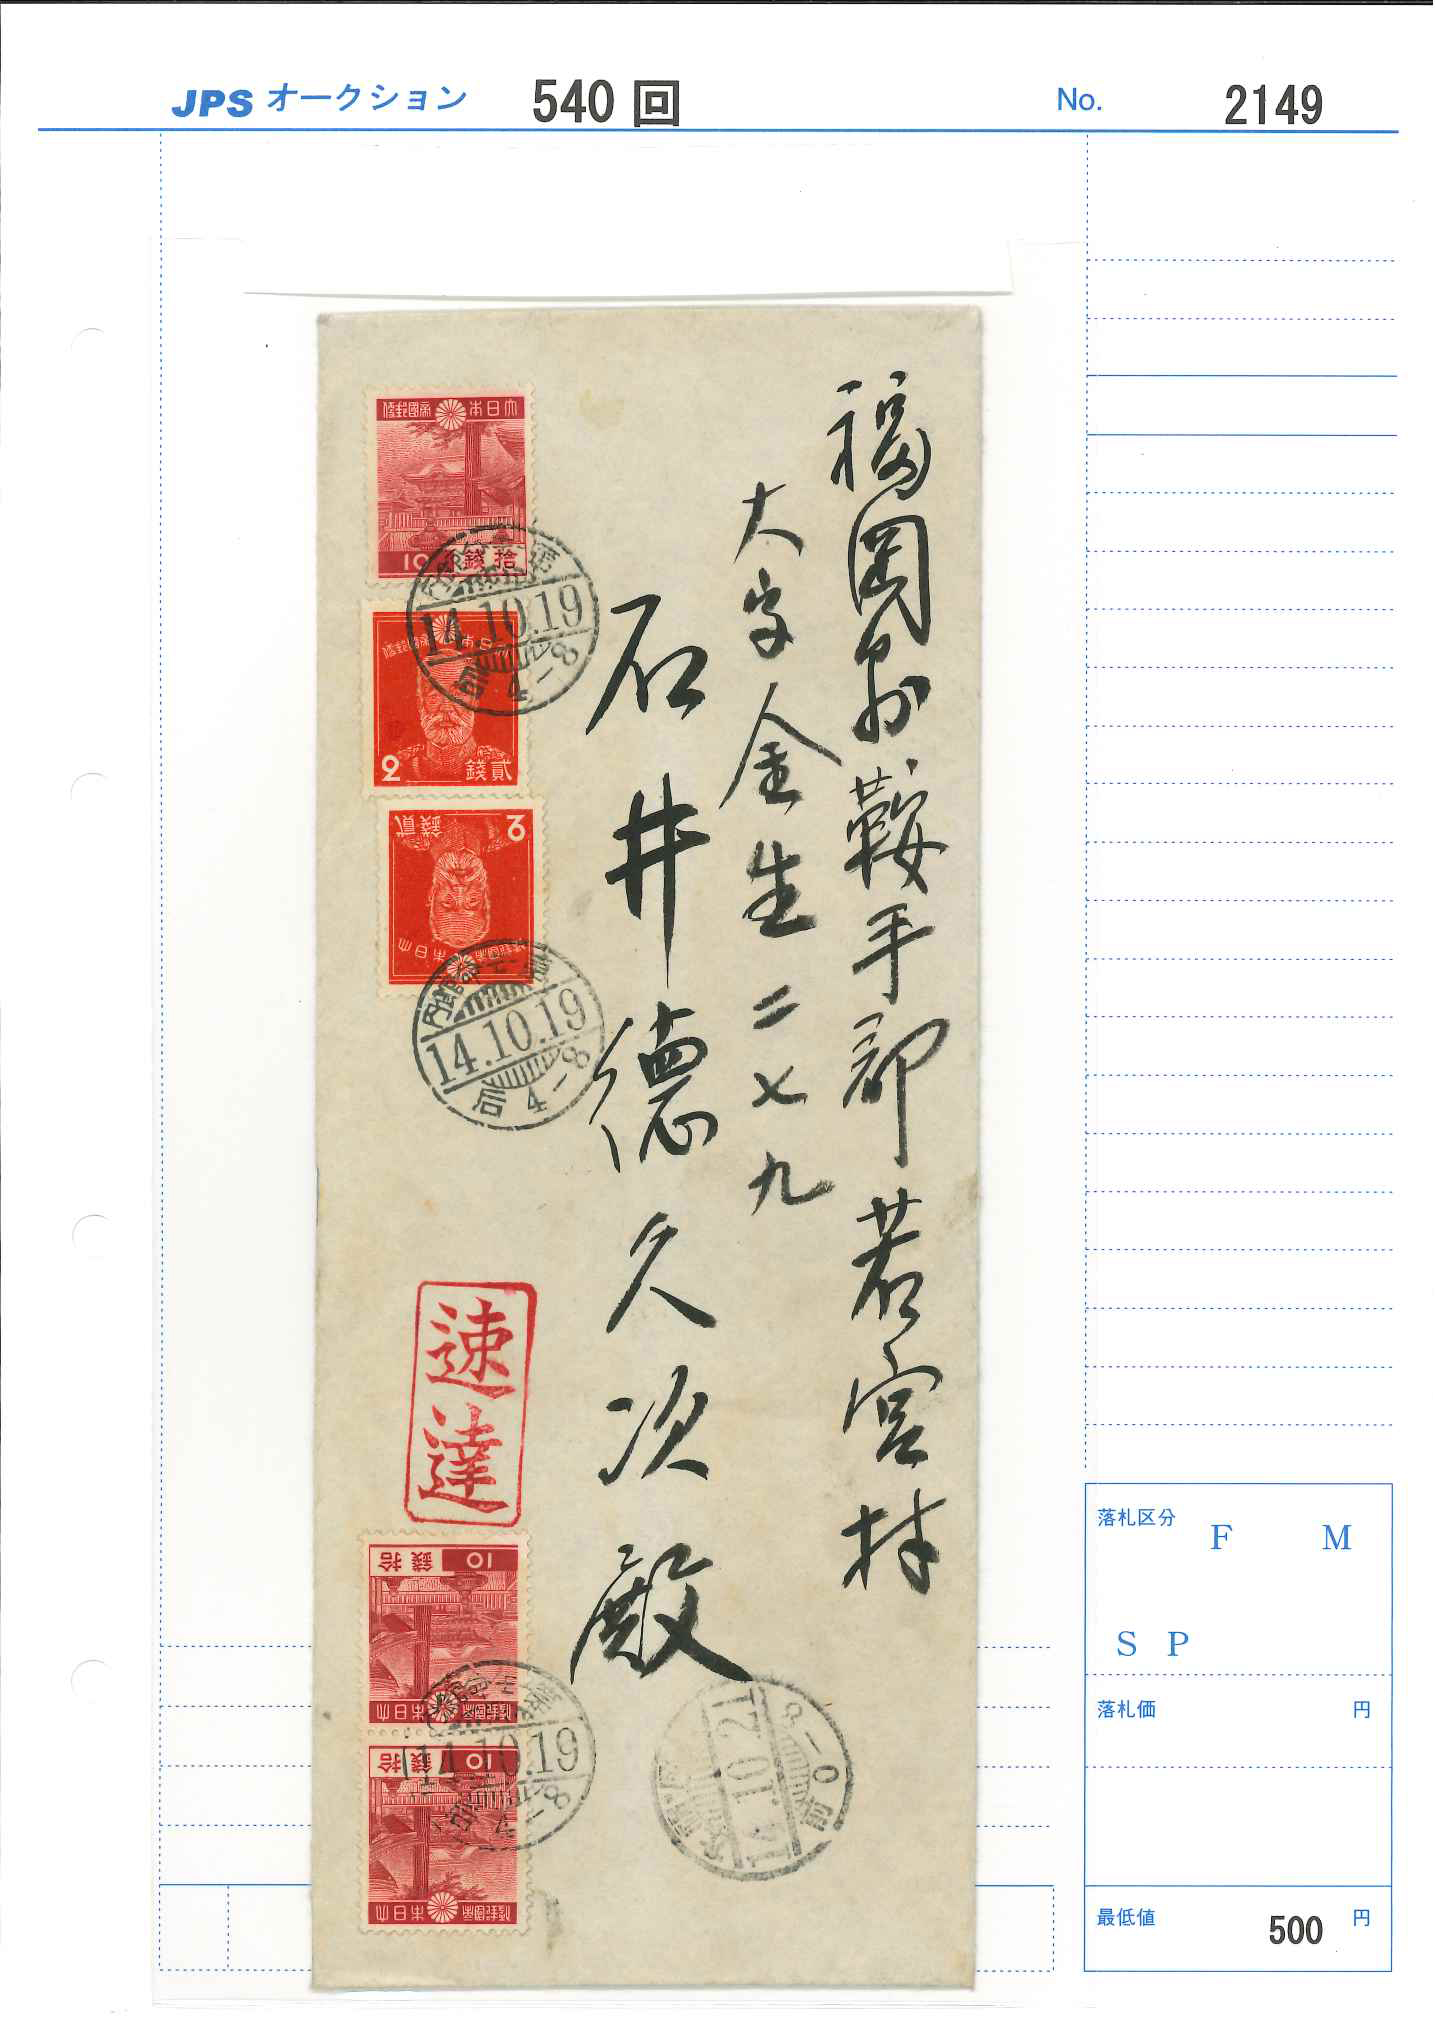 JPS オークション 540 回 No. 2149
福岡縣鞍手郡若宮村
大字金生二七九
石井德久次殿
大日本帝國郵便
拾錢 10
14.10.19
后 4-8
大日本帝國郵便
貳錢 2
貳錢 2
大日本帝國郵便
14.10.19
后 4-8
速達
拾錢 10
大日本帝國郵便
拾錢 10
大日本帝國郵便
14.10.19
后 4-8
14.10.21
前 0-8
落札区分 F M
S P
落札価 円
最低値 500 円